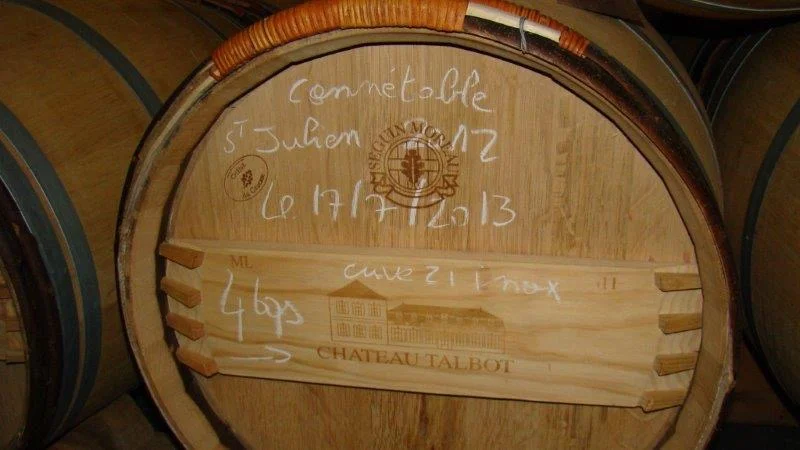 Connétable
SEGUIN MOREAU
St Julien 2012
Le 17/7/2013
ML
cuve 21 inox
4 bqs
CHATEAU TALBOT